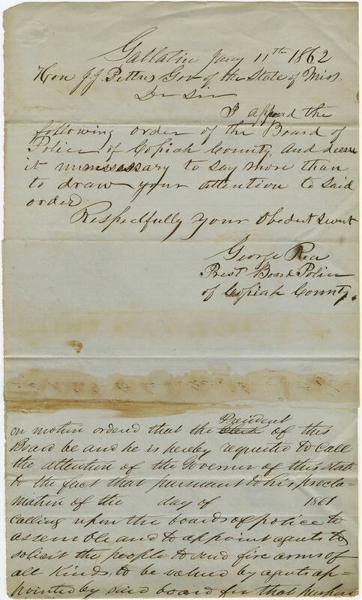 Gallatin Jany 11th 1862
Hon J.J. Pettus Gov of the State of Miss.
Dr Sir
I append the
following order of the Board of
Police of Copiah County, and deem
it unnessary to say more than
to draw your attention to said
order
Respectfully your Obedent Servt
George Rea
Prest Board Police
of Copiah County.
President
on motion ordered that the Clerk of this
Board be and he is hereby requested to call
the attention of the Governor of this State
to the fact that pursuant to his procla-
mation of the day of 1861
calling upon the boards of police to
assemble and to appoint agents to
solicit the people to send fire arms of
all kinds to be valued by agents ap-
pointed by said board for that purpose